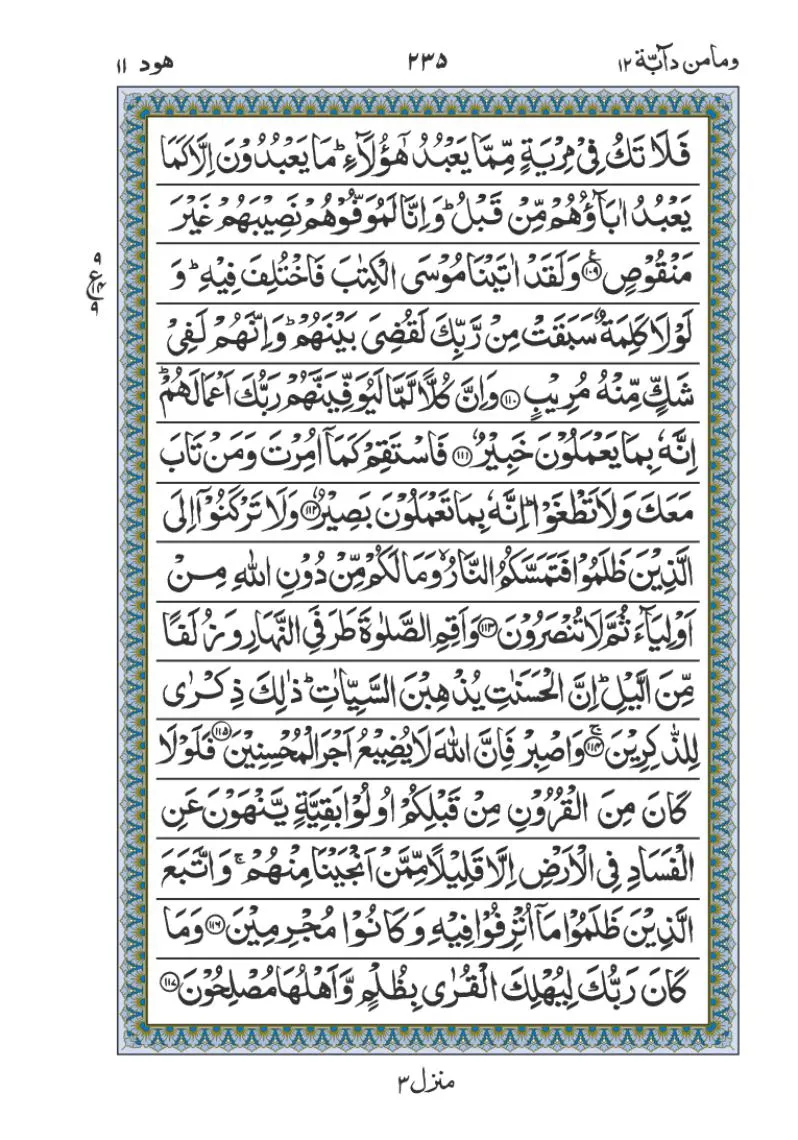 وما من دآبّة ١٢ ٢٣٥ هود ١١
فَلَا تَكُ فِیْ مِرْیَةٍ مِّمَّا یَعْبُدُ هٰۤؤُلَآءِ ؕ مَا یَعْبُدُوْنَ اِلَّا كَمَا
یَعْبُدُ اٰبَآؤُهُمْ مِّنْ قَبْلُ ؕ وَ اِنَّا لَمُوَفُّوْهُمْ نَصِیْبَهُمْ غَیْرَ
مَنْقُوْصٍ ۠﴿۱۰۹﴾ وَ لَقَدْ اٰتَیْنَا مُوْسَی الْكِتٰبَ فَاخْتُلِفَ فِیْهِ ؕ وَ
لَوْ لَا كَلِمَةٌ سَبَقَتْ مِنْ رَّبِّكَ لَقُضِیَ بَیْنَهُمْ ؕ وَ اِنَّهُمْ لَفِیْ
شَكٍّ مِّنْهُ مُرِیْبٍ ﴿۱۱۰﴾ وَ اِنَّ كُلًّا لَّمَّا لَیُوَفِّیَنَّهُمْ رَبُّكَ اَعْمَالَهُمْ ؕ
اِنَّهٗ بِمَا یَعْمَلُوْنَ خَبِیْرٌ ﴿۱۱۱﴾ فَاسْتَقِمْ كَمَاۤ اُمِرْتَ وَ مَنْ تَابَ
مَعَكَ وَ لَا تَطْغَوْا ؕ اِنَّهٗ بِمَا تَعْمَلُوْنَ بَصِیْرٌ ﴿۱۱۲﴾ وَ لَا تَرْكَنُوْۤا اِلَی
الَّذِیْنَ ظَلَمُوْا فَتَمَسَّكُمُ النَّارُ ۙ وَ مَا لَكُمْ مِّنْ دُوْنِ اللّٰهِ مِنْ
اَوْلِیَآءَ ثُمَّ لَا تُنْصَرُوْنَ ﴿۱۱۳﴾ وَ اَقِمِ الصَّلٰوةَ طَرَفَیِ النَّهَارِ وَ زُلَفًا
مِّنَ الَّیْلِ ؕ اِنَّ الْحَسَنٰتِ یُذْهِبْنَ السَّیِّاٰتِ ؕ ذٰلِكَ ذِكْرٰی
لِلذّٰكِرِیْنَ ۚ﴿۱۱۴﴾ وَ اصْبِرْ فَاِنَّ اللّٰهَ لَا یُضِیْعُ اَجْرَ الْمُحْسِنِیْنَ ﴿۱۱۵﴾ فَلَوْ لَا
كَانَ مِنَ الْقُرُوْنِ مِنْ قَبْلِكُمْ اُولُوْا بَقِیَّةٍ یَّنْهَوْنَ عَنِ
الْفَسَادِ فِی الْاَرْضِ اِلَّا قَلِیْلًا مِّمَّنْ اَنْجَیْنَا مِنْهُمْ ۚ وَ اتَّبَعَ
الَّذِیْنَ ظَلَمُوْا مَاۤ اُتْرِفُوْا فِیْهِ وَ كَانُوْا مُجْرِمِیْنَ ﴿۱۱۶﴾ وَ مَا
كَانَ رَبُّكَ لِیُهْلِكَ الْقُرٰی بِظُلْمٍ وَّ اَهْلُهَا مُصْلِحُوْنَ ﴿۱۱۷﴾
٩ ع ١٤ ٩
منزل ٣